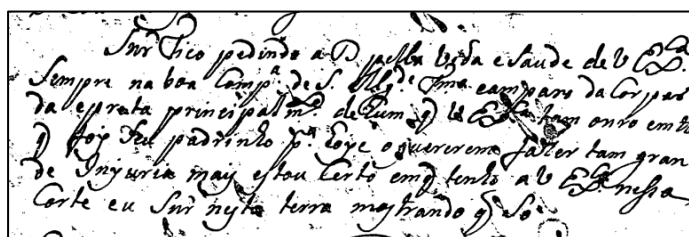 Snr fico pedindo a D pella vida e saude de V Exª.
Sempre na boa Compª de S. Illᵐᵃ e amparo da
da e preta principalmᵗᵉ de hum q V Exª tam onrozamᵗᵉ
q foy seu padrinho pª oye o quererem fazer tam gran
de Injuria mais estou Certo em q tenho a V Exª nessa
Corte eu Snr nesta terra mostrando q So